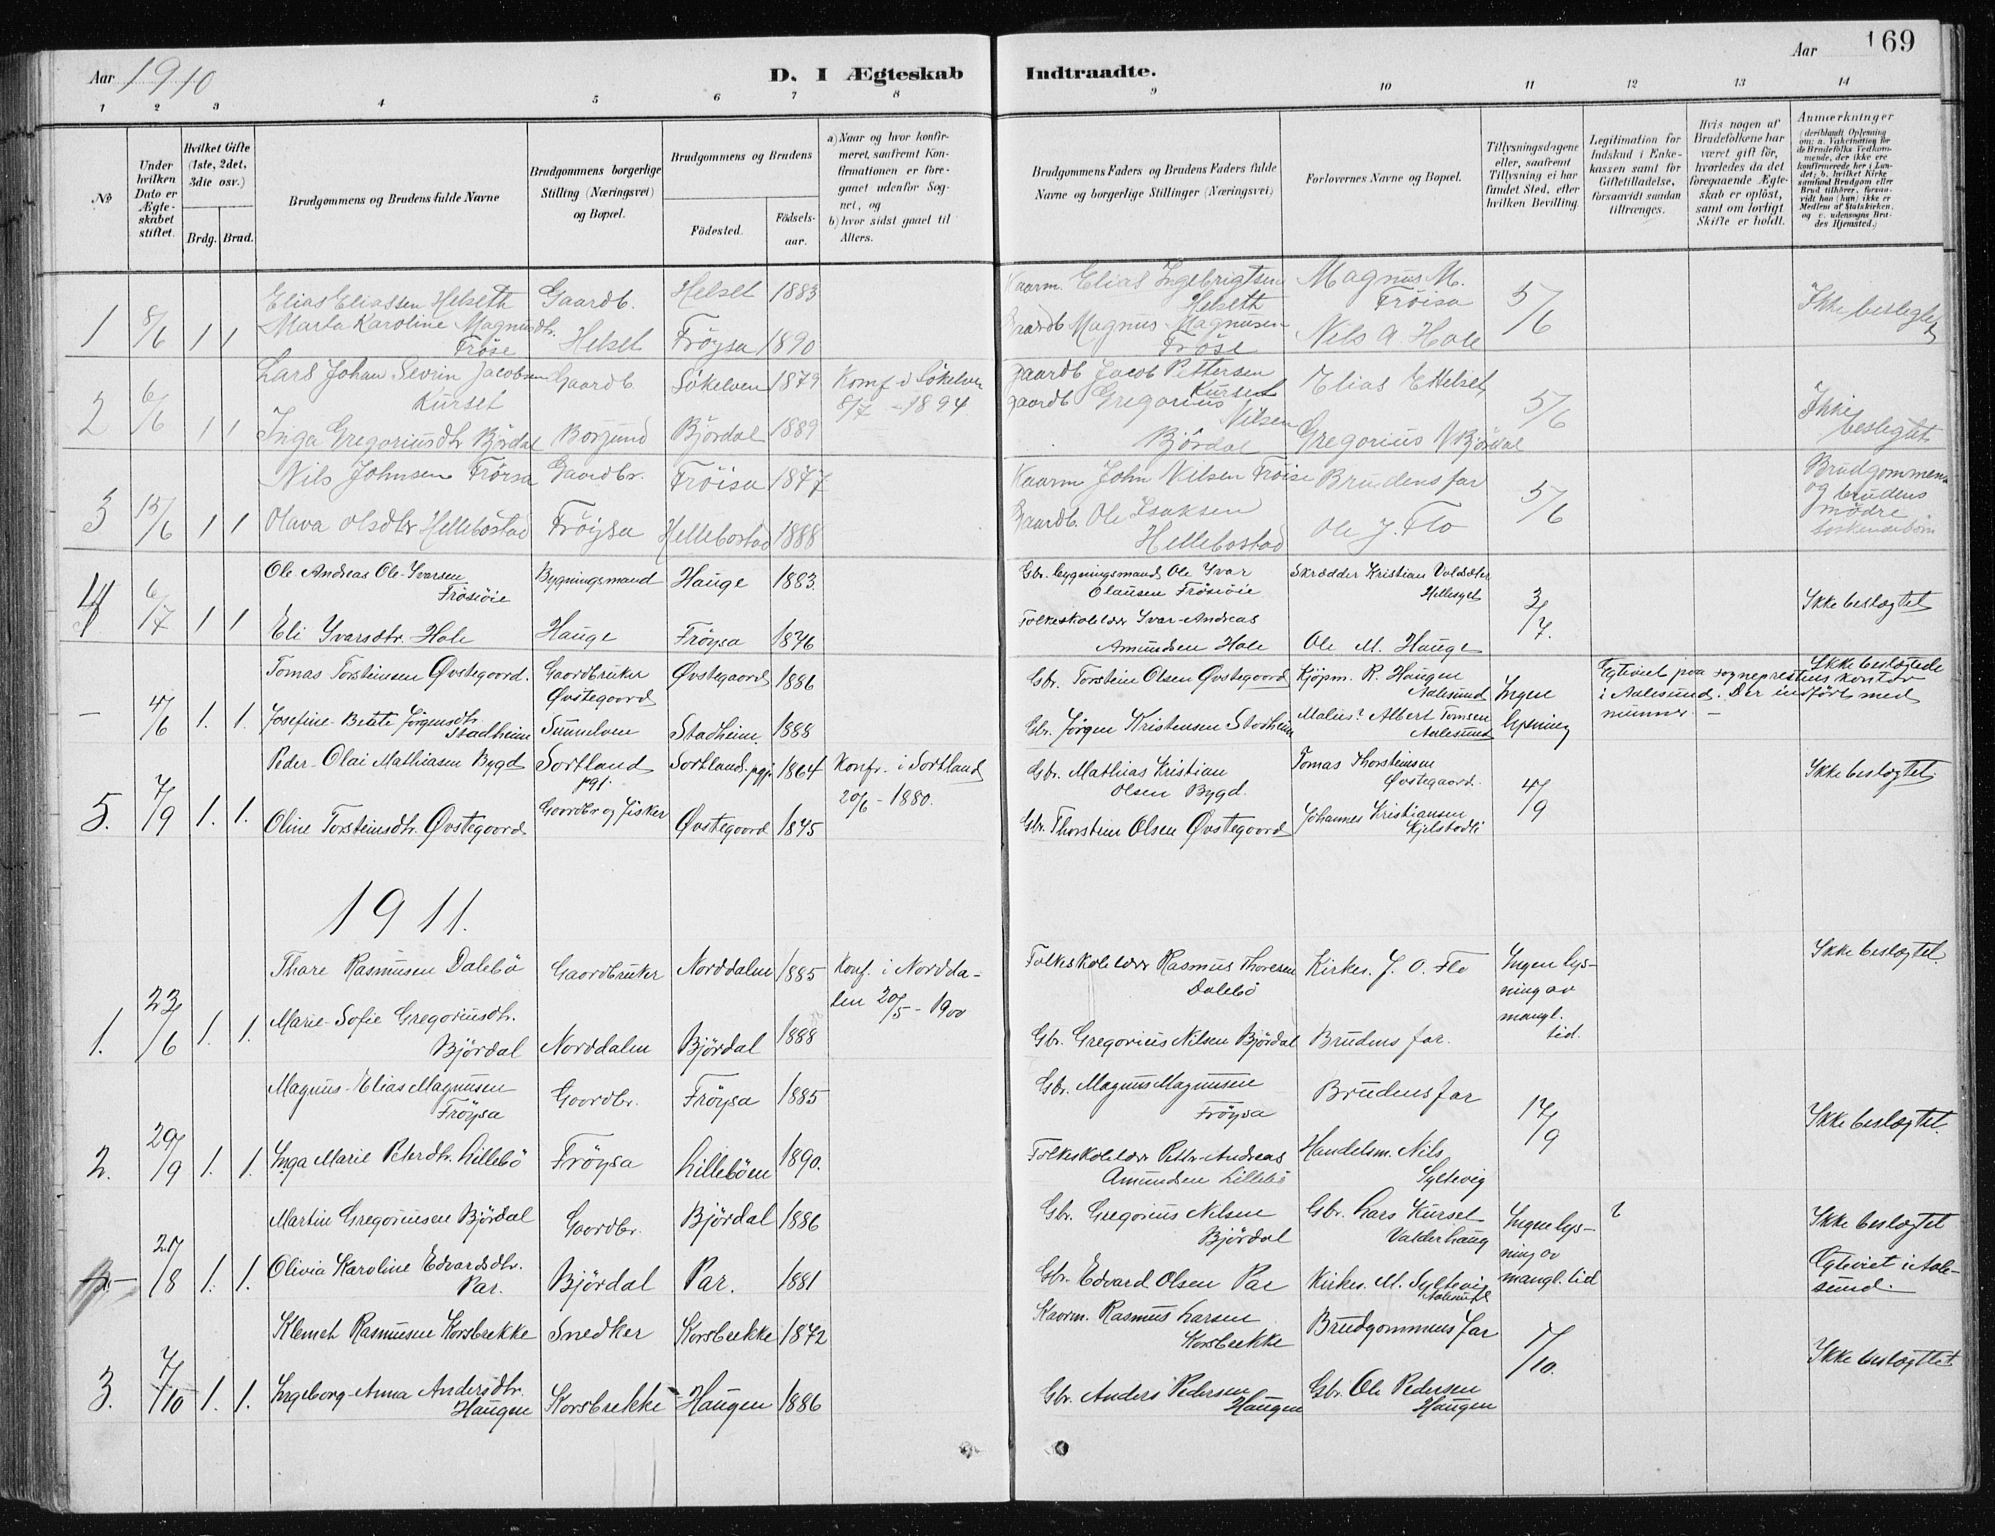 169
Aar 1910
D. I Ægteskab Indtraadte.
Aar
1 2 3 4 5 6 7 8 9 10 11 12 13 14
No
Under hvilken Dato er Ægteskabet stiftet.
Hvilket Gifte (1ste, 2det, 3die osv.)
Brdg. Brud.
Brudgommens og Brudens fulde Navne
Brudgommens borgerlige Stilling (Næringsvei) og Bopæl.
Brudgommens og Brudens
Födested. Födselsaar.
a) Naar og hvor konfirmeret, saafremt Konfirmationen er foregaaet udenfor Sognet, og
b) hvor sidst gaaet til Alters.
Brudgommens Faders og Brudens Faders fulde Navne og borgerlige Stillinger (Næringsvei)
Forlovernes Navne og Bopæl.
Tillysningsdagene eller, saafremt Tillysning ei har fundet Sted, efter hvilken Bevilling.
Legitimation for Indskud i Enkekassen samt for Giftetilladelse, forsaavidt saadan tiltrænges.
Hvis nogen af Brudefolkene har været gift för, hvorledes da det foregaaende Ægteskab er oplöst, samt om lovligt Skifte er holdt.
Anmærkninger
(deriblandt Oplysning om: a. Vakcination for de Brudefolks Vedkommende, der ikke ere konfirmerede her i Landet; b. hvilket Kirkesamfund Brudgom eller Brud tilhörer, forsaavidt han (hun) ikke er Medlem af Statskirken, og c. udensogns Brudes Hjemsted.)
1 8/6 1 1 Elias Eliassen Helseth Gaardb. Helset 1883 Kaarm. Elias Ingebrigtsen Helseth Magnus M. Fröisa 5/6 Ikke beslegtet
Marta Karoline Magnusdtr. Fröse Helset Fröysa 1890 Gaardb Magnus Magnusen Fröse Nils A. Hole
2 6/6 1 1 Lars Johan Sevrin Jacobsen Kurset Gaardb Sökelven 1879 Komf i Sökelven 8/7 - 1894 Gaardb Jacob Pettersen Kurset Elias E Helset, 5/6 Ikke beslegtet
Inga Gregoriusdtr Björdal Borgund Björdal 1889 Gaardb Gregorius Nilsen Björdal Gregorius N Björdal
3 15/6 1 1 Nils Johnsen Fröisa Gaardbr. Fröisa 1877 Kaarm John Nilsen Fröise Brudens far 5/6 Brudgommens og brudens mödre söskendebörn
Olava Olsdtr Hellebostad Fröysa Hellebostad 1888 Gaardb. Ole Isaksen Hellebostad Ole J. Flo
4 6/7 1 1 Ole Andreas Ole-Ivarsen Frösöie Bygningsmand Hauge 1883. Gbr. bygningsmand Ole Ivar Olausen Frösöie Skrædder Kristian Valdsæter Hellesylt 3/7. Ikke beslægtet
Eli Ivarsdtr. Hole Hauge Fröysa 1876 Folkeskolelærer Ivar-Andreas Amundsen Hole Ole M. Hauge
— 4/6 1. 1. Tomas Torsteinsen Øvstegaard. Gaardbruker Øvstegaard Øvstegaard 1886 Gbr. Torstein Olsen Øvstegaard Kjöpm. R. Haugen Aalesund Ingen lysning Egteviet paa sogneprestens kontor i Aalesund. Der indfört med nummer. — Ikke beslægtede
Josefine-Betzte Jörgensdtr. Stadheim Sunnelven Stadheim. 1888 Gbr. Jörgen Kristensen Stadheim Albert Tomsen Aalesund
5. 7/9 1. 1. Peder-Olai Mathiasen Bygd Sortland pgj. Sortland pgj. 1864 Konfr. i Sortland 20/6 - 1880. Gbr. Mathias Kristian Olsen Bygd. Tomas Thorsteinsen Øvstegaard. 4/9 Ikke beslægtet
Oline Torsteinsdtr. Øvstegaard Gaardbr og fisker Øvstegaard 1875 Gbr. Thorstein Olsen Øvstegaard Johannes Kristiansen Kjelstadli
1911.
1. 23/6 1. 1. Thore Rasmusen Dalebö Gaardbruker Norddalen 1885 Konf. i Norddalen 20/5 - 1900 Folkeskolelærer Rasmus Thoresen Dalebö Kirkes. J. O. Flo Ingen lysning av mangl. tid. Ikke beslægtet.
Marie-Sofie Gregoriusdtr. Björdal Norddalen Björdal 1888 Gbr. Gregorius Nilsen Björdal Brudens far.
2. 29/9 1. 1. Magnus-Elias Magnusen Fröysa Gaardbr. Fröysa 1885 Gbr. Magnus Magnusen Fröysa Brudens far 17/9 Ikke beslægtet.
Inga Marie Petersdtr. Lillebö Fröysa Lilleböen 1890. Folkeskolelærer Petter-Andreas Amundsen Lillebö Handelsm. Nils Syltevig
— 27/8 1. 1. Martin Gregoriusen Björdal Gaardbr. Björdal 1886 Gbr. Gregorius Nilsen Björdal Gbr. Lars Kurset Valderhaug Ingen lysning av mangl. tid Ikke beslægtet
Olivia Karoline Edvardsdtr. Par. Björdal Par. 1881 Gbr. Edvard Olsen Par Kirkes. M. Syltevig Aalesund Egteviet i Aalesund.
3. 7/10 1. 1. Klemet Rasmusen Korsbrekke Snedker Korsbrekke 1872 Kaarm. Rasmus Larsen Korsbrekke Brudgommens far 1/10. Ikke beslægtet
Ingeborg-Anna Andersdtr. Haugen Korsbrekke Haugen 1886 Gbr. Anders Pedersen Haugen Gbr. Ole Pedersen Haugen